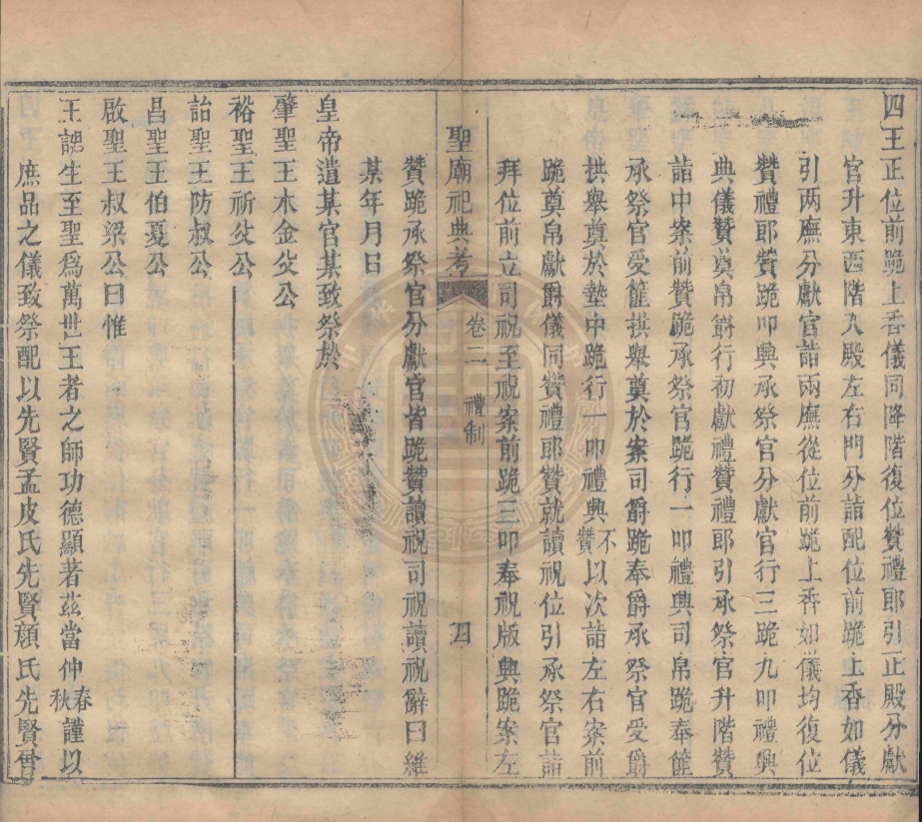 四王正位前跪上香儀同降階復位贊禮郎引正殿分獻
官升東西階入殿左右門分詣配位前跪上香如儀
引兩廡分獻官詣兩廡從位前跪上香如儀均復位
贊禮郎贊跪叩興承祭官分獻官行三跪九叩禮興
典儀贊奠帛爵行初獻禮贊禮郎引承祭官升階贊
詣中案前贊跪承祭官跪行一叩禮興司帛跪奉篚
承祭官受篚拱舉奠於案司爵跪奉爵承祭官受爵
拱舉奠於墊中跪行一叩禮興不贊以次詣左右案前
跪奠帛獻爵儀同贊禮郎贊就讀祝位引承祭官詣
拜位前立司祝至祝案前跪三叩奉祝版興跪案左
聖廟祀典考 卷二 禮制 四
贊跪承祭官分獻官皆跪贊讀祝司祝讀祝辭曰維
某年月日
皇帝遣某官某致祭於
肇聖王木金父公
裕聖王祈父公
詒聖王防叔公
昌聖王伯夏公
啟聖王叔梁公曰惟
王誕生至聖為萬世王者之師功德顯著茲當仲春秋謹以
庶品之儀致祭配以先賢孟皮氏先賢顏氏先賢曾